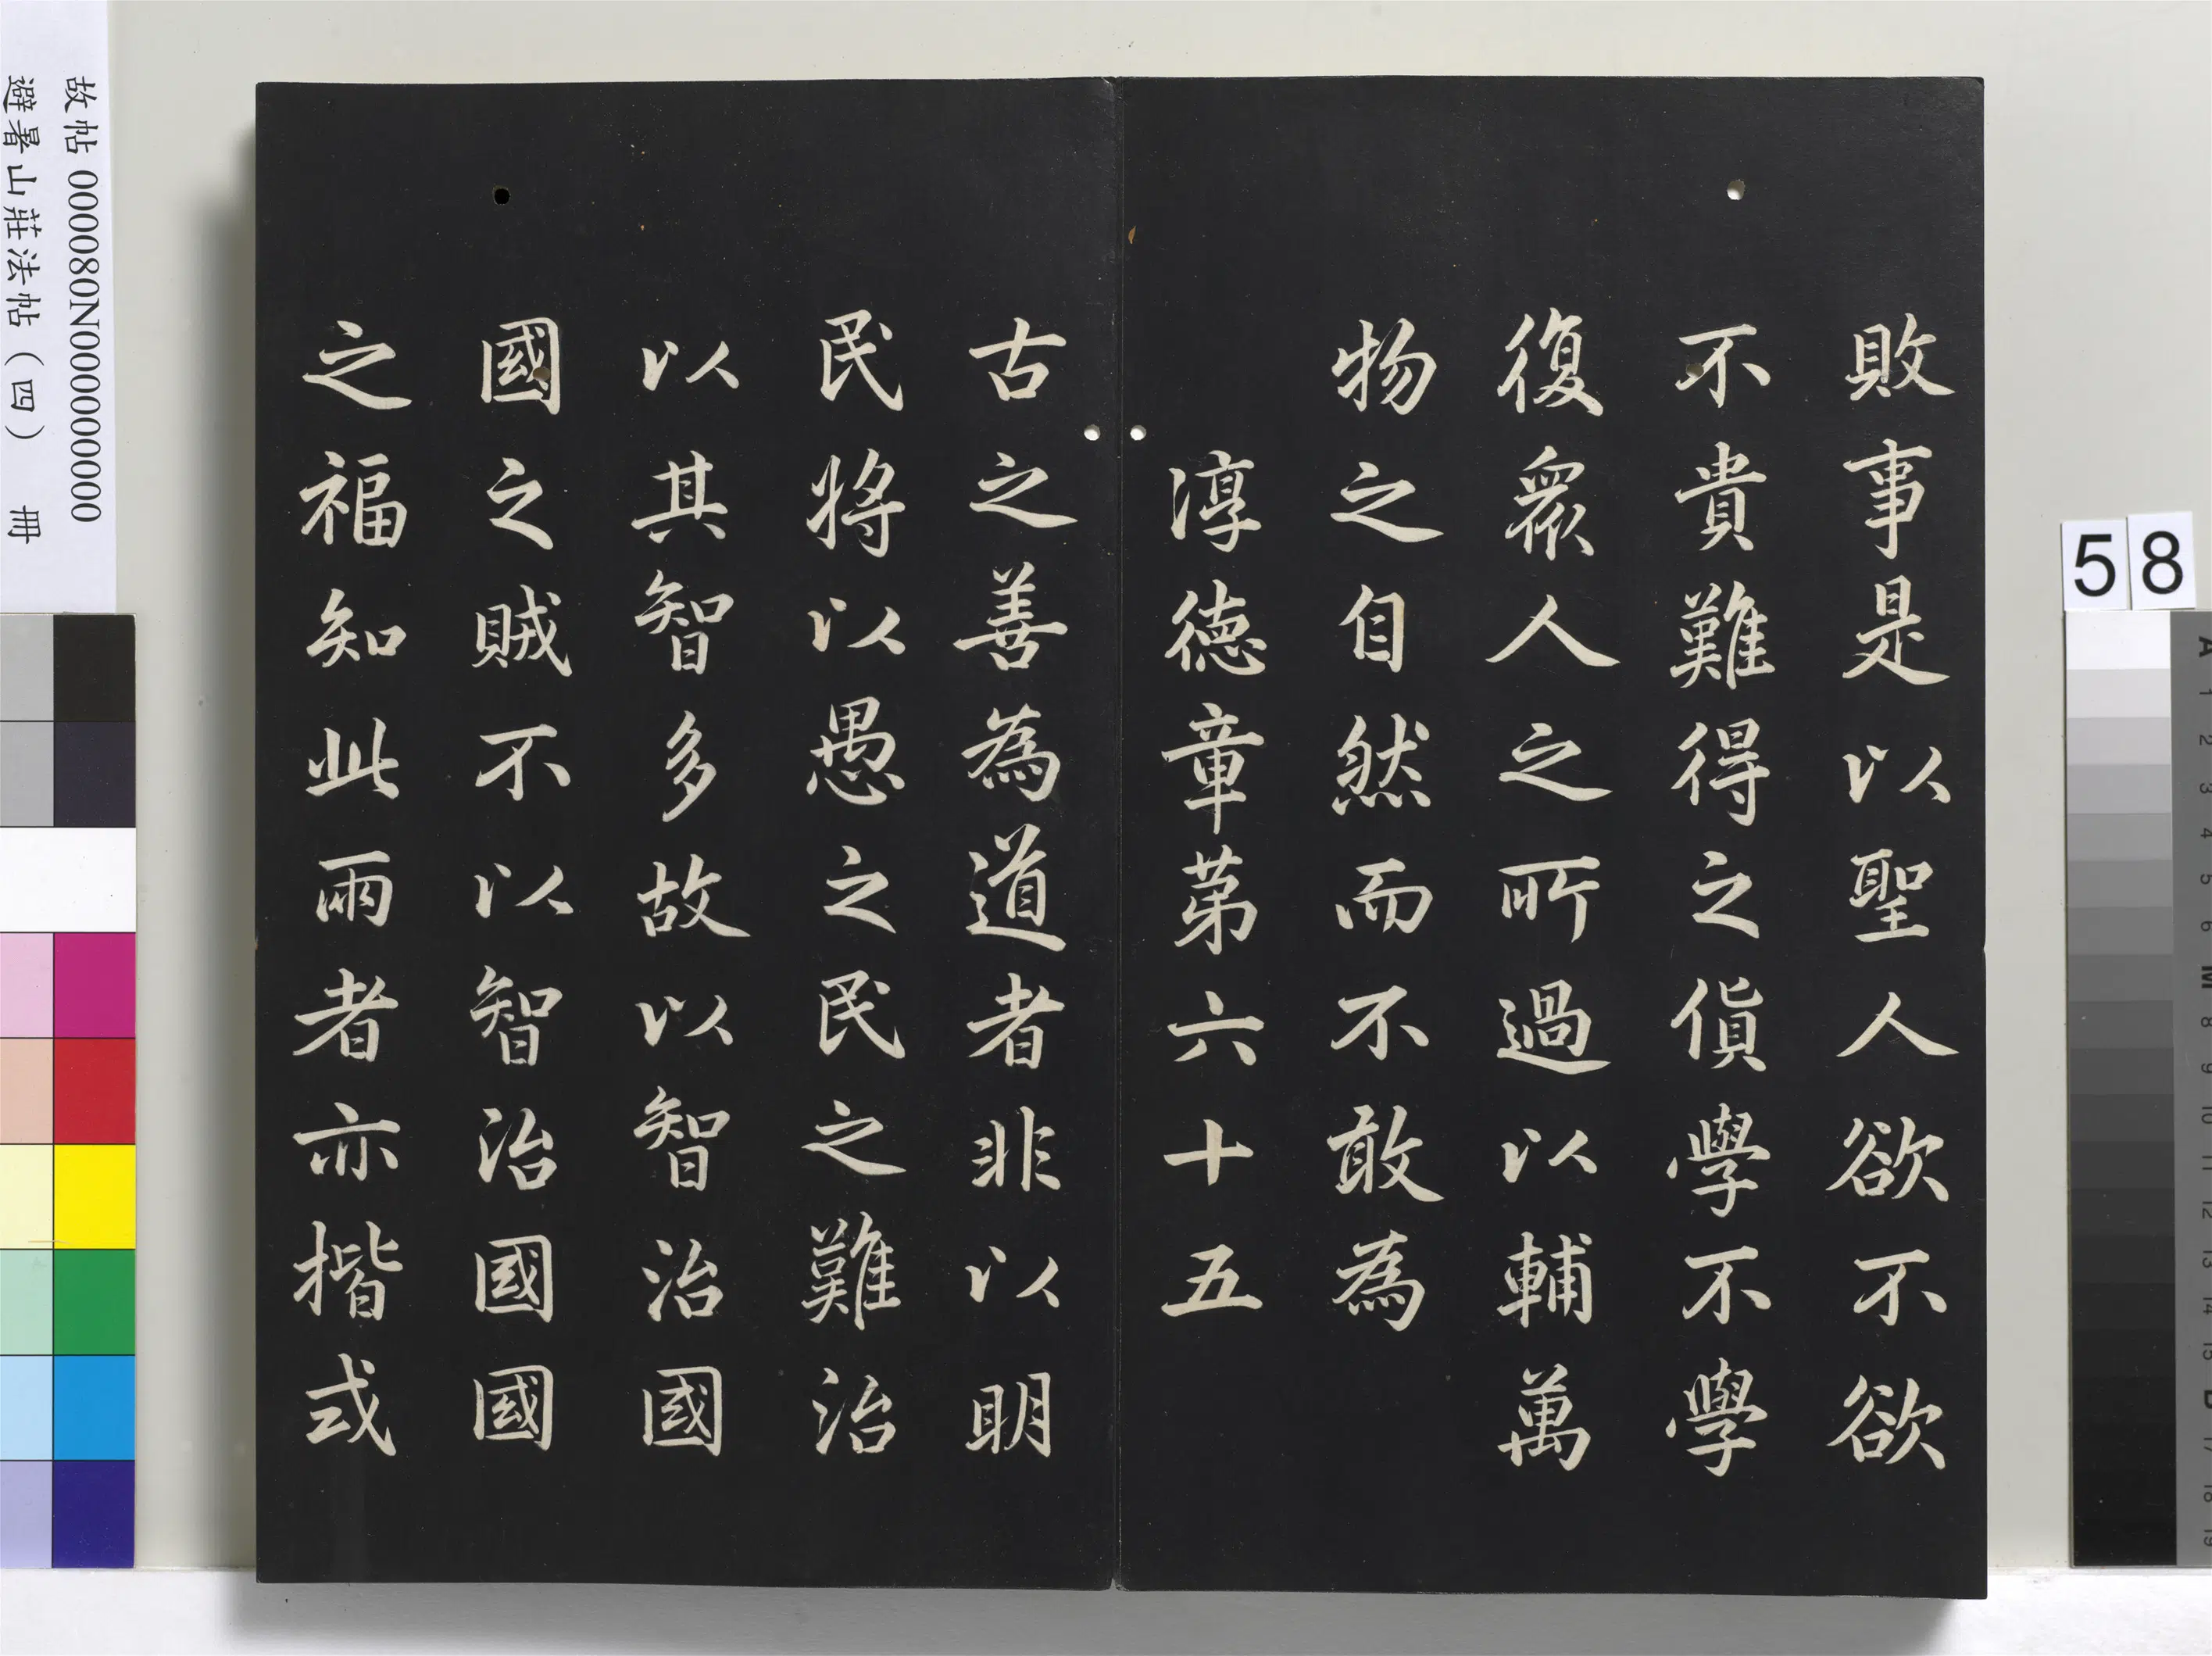 敗事是以聖人欲不欲
不貴難得之貨學不學
復眾人之所過以輔萬
物之自然而不敢為
淳德章第六十五
古之善為道者非以明
民將以愚之民之難治
以其智多故以智治國
國之賊不以智治國國
之福知此兩者亦揩式
故帖 000080N000000000
避暑山莊法帖（四） 冊
58